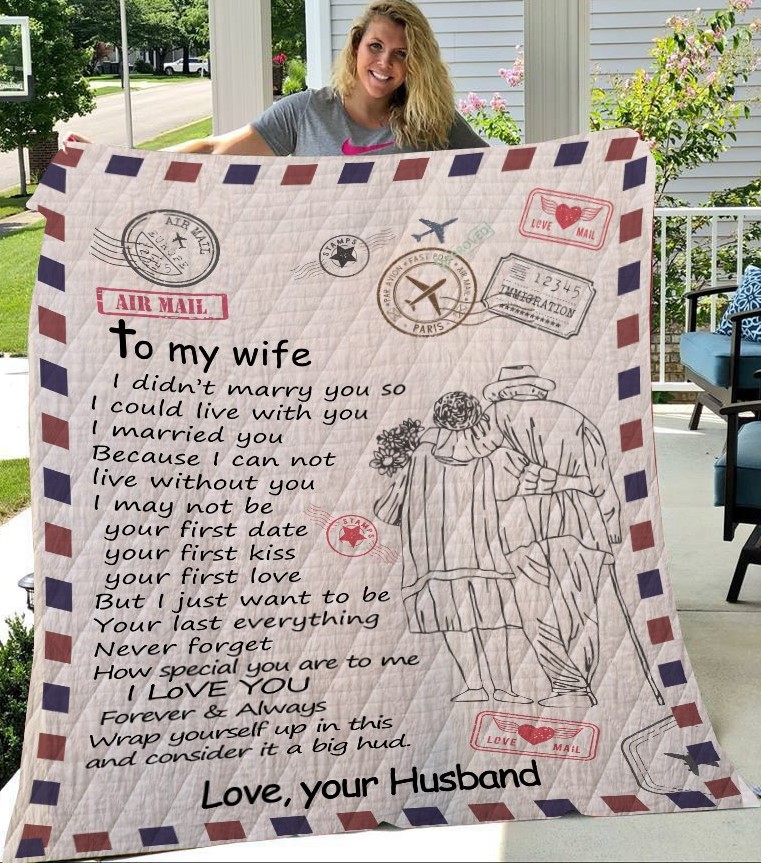 AIR MAIL
EUROPE
AIR MAIL
STAMPS
PAR AVION * FAST POST * AIR MAIL
PARIS
LOVE MAIL
12345
IMMIGRATION
To my wife
I didn't marry you so
I could live with you
I married you
Because I can not
live without you
I may not be
your first date
your first kiss
your first love
But I just want to be
Your last everything
Never forget
How special you are to me
I LOVE YOU
Forever & Always
Wrap yourself up in this
and consider it a big hud.
Love, your Husband
STAMPS
LOVE MAIL